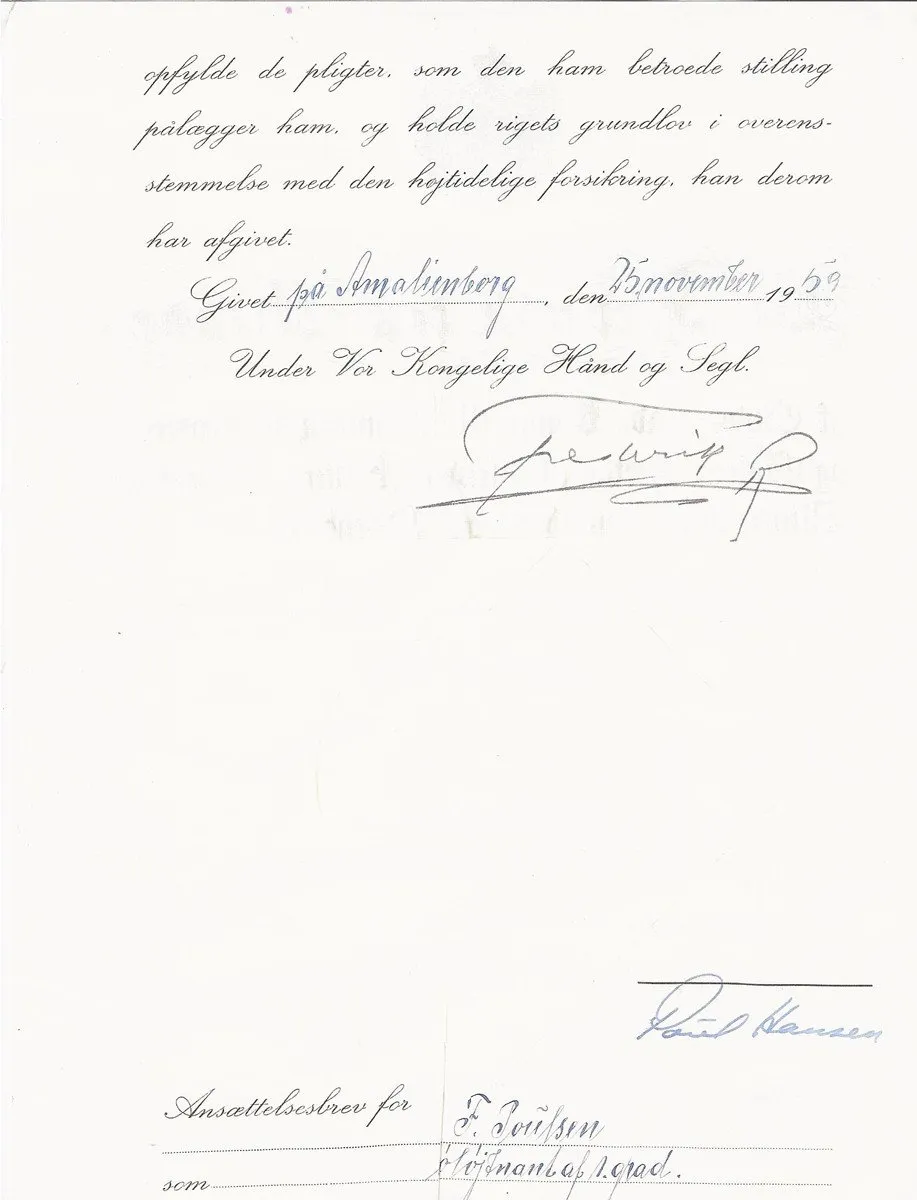 opfylde de pligter, som den ham betroede stilling
pålægger ham, og holde rigets grundlov i overens-
stemmelse med den højtidelige forsikring, han derom
har afgivet.
Givet på Amalienborg, den 25. november 1959
Under Vor Kongelige Hånd og Segl.
Frederik R
Poul Hansen
Ansættelsesbrev for F. Poulsen
som løjtnant af 1. grad.